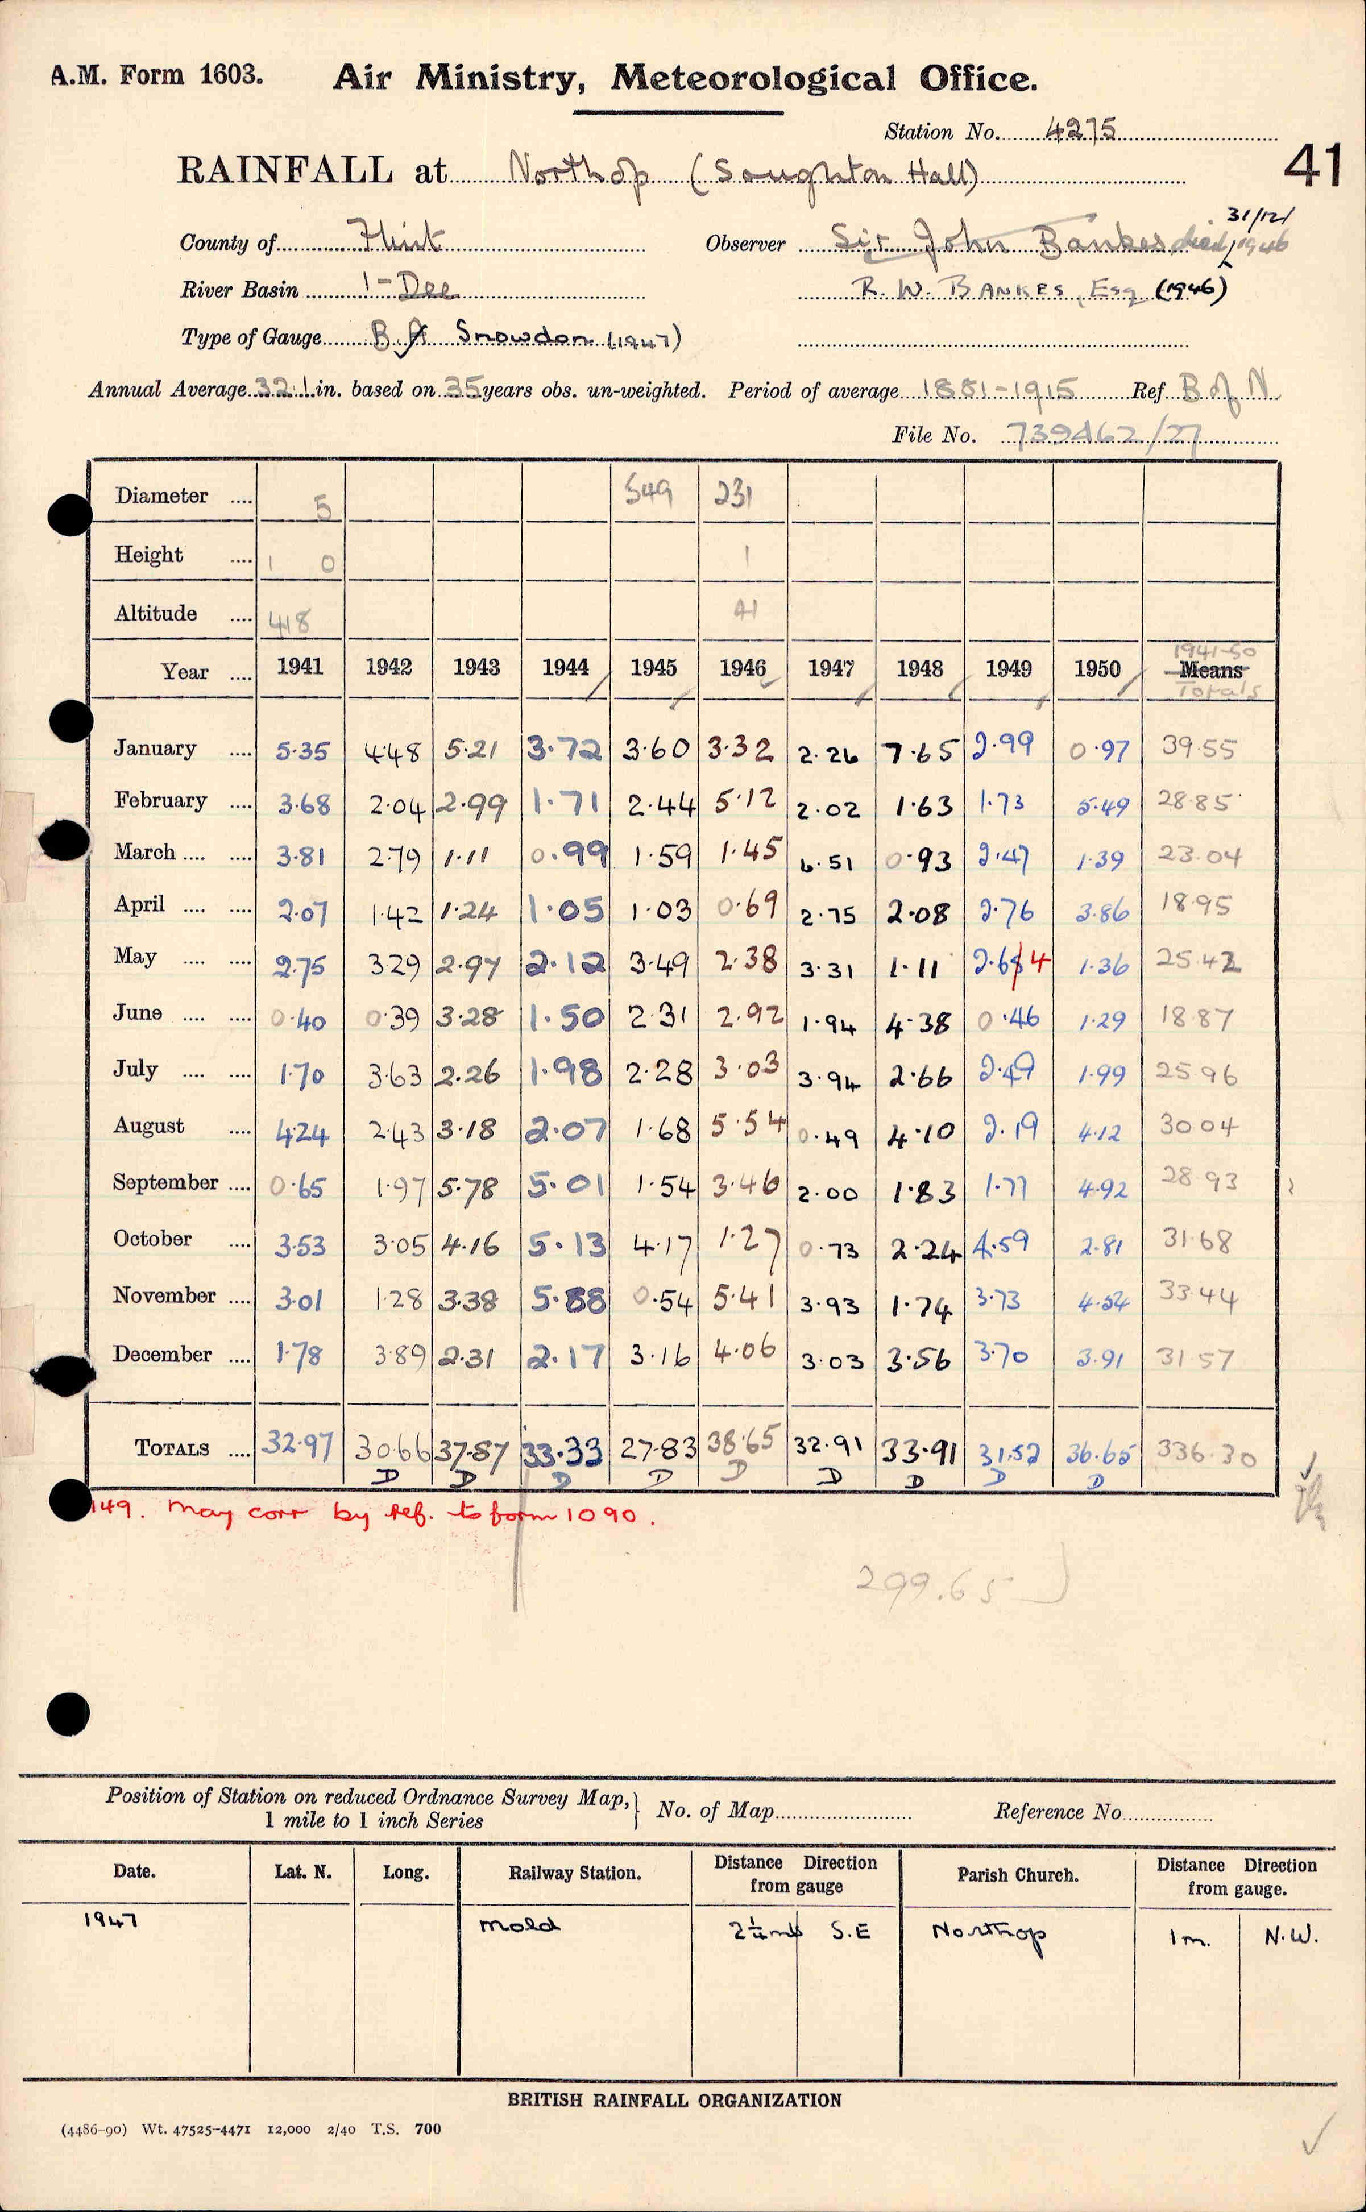 A.M. Form 1603. Air Ministry, Meteorological Office.
Station No. 4275
41
RAINFALL at Northop (Soughton Hall)
County of Flint Observer Sir John Bankes died 31/12/1946
River Basin 1-Dee R. W. BANKES, Esq (1946)
Type of Gauge B.A Snowdon (1947)
Annual Average 32.1 in. based on 35 years obs. un-weighted. Period of average 1881-1915 Ref B of N
File No. 739462/27
Diameter .... 5 549 231
Height .... 1 0 1
Altitude .... 418 41
Year .... 1941 1942 1943 1944 1945 1946 1947 1948 1949 1950 1941-50 Means Totals
January .... 5.35 4.48 5.21 3.72 3.60 3.32 2.26 7.65 2.99 0.97 39.55
February .... 3.68 2.04 2.99 1.71 2.44 5.12 2.02 1.63 1.73 5.49 28.85
March .... .... 3.81 2.79 1.11 0.99 1.59 1.45 6.51 0.93 2.47 1.39 23.04
April .... .... 2.07 1.42 1.24 1.05 1.03 0.69 2.75 2.08 2.76 3.86 18.95
May .... .... 2.75 3.29 2.97 2.12 3.49 2.38 3.31 1.11 2.64 1.36 25.42
June .... .... 0.40 0.39 3.28 1.50 2.31 2.92 1.94 4.38 0.46 1.29 18.87
July .... .... 1.70 3.63 2.26 1.98 2.28 3.03 3.94 2.66 2.49 1.99 25.96
August .... 4.24 2.43 3.18 2.07 1.68 5.54 0.49 4.10 2.19 4.12 30.04
September .... 0.65 1.97 5.78 5.01 1.54 3.46 2.00 1.83 1.77 4.92 28.93
October .... 3.53 3.05 4.16 5.13 4.17 1.27 0.73 2.24 4.59 2.81 31.68
November .... 3.01 1.28 3.38 5.88 0.54 5.41 3.93 1.74 3.73 4.54 33.44
December .... 1.78 3.89 2.31 2.17 3.16 4.06 3.03 3.56 3.70 3.91 31.57
TOTALS .... 32.97 30.66 37.87 33.33 27.83 38.65 32.91 33.91 31.52 36.65 336.30
D D D D D D D D D
149. May corr by ref. to form 1090.
299.65
Position of Station on reduced Ordnance Survey Map, } No. of Map Reference No.
1 mile to 1 inch Series
Date. Lat. N. Long. Railway Station. Distance Direction from gauge Parish Church. Distance Direction from gauge.
1947 Mold 2¼ mls S.E Northop 1m. N.W.
BRITISH RAINFALL ORGANIZATION
(4486-90) Wt. 47525-4471 12,000 2/40 T.S. 700